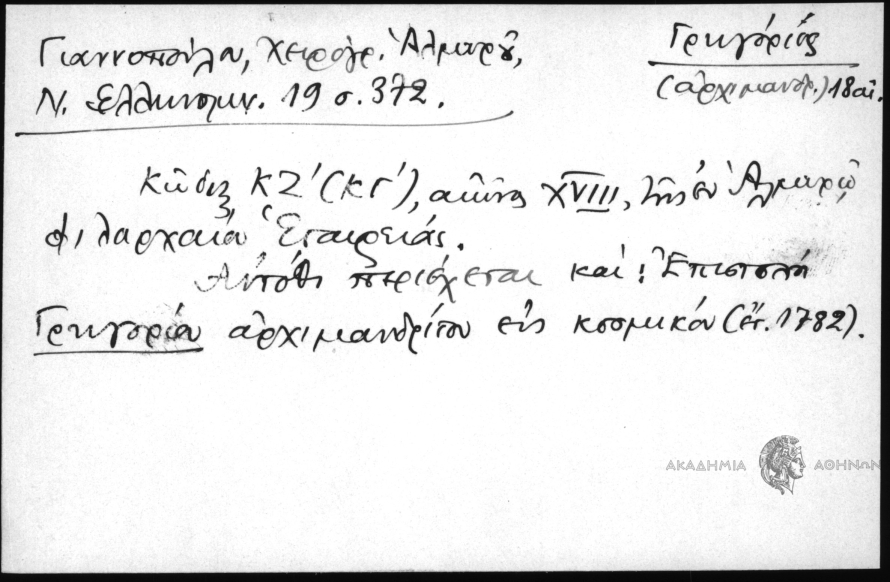 Γιαννοπούλου, Χειρόγρ. Ἁλμυροῦ,
Ν. Ἑλληνομν. 19 σ. 372.
Γρηγόριος
(ἀρχιμανδρ.) 18 αἰ.
Κῶδιξ ΚΖ' (ΚΓ'), αἰῶνος XVIII, τῆς ἐν Ἁλμυρῷ
φιλαρχαίου Ἑταιρείας.
Αὐτόθι περιέχεται καί: Ἐπιστολή
Γρηγορίου ἀρχιμανδρίτου εἰς κοσμικόν (ἔτ. 1782).
ΑΚΑΔΗΜΙΑ ΑΘΗΝΩΝ